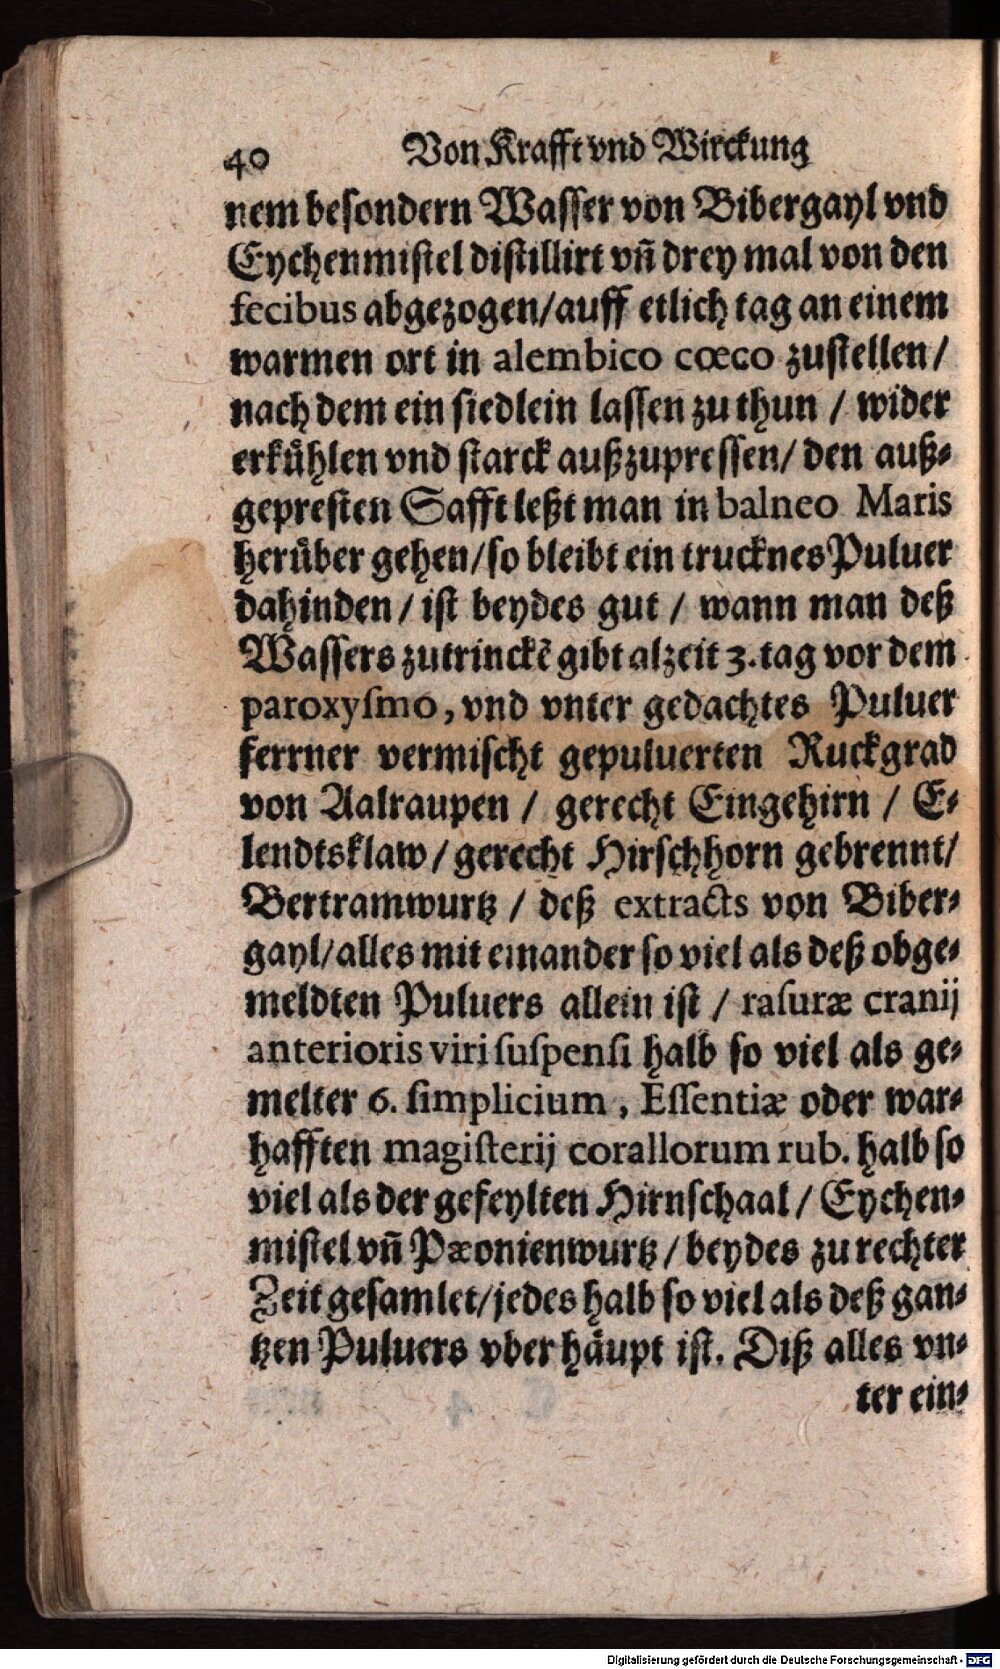 40 Von Krafft vnd Wirckung
nem besondern Wasser von Bibergayl vnd
Eychenmistel distillirt vñ drey mal von den
fecibus abgezogen/auff etlich tag an einem
warmen ort in alembico cœco zustellen/
nach dem ein siedlein lassen zu thun / wider
erkuͤhlen vnd starck außzupressen/ den auß⸗
gepresten Safft leßt man in balneo Maris
heruͤber gehen/so bleibt ein trucknes Puluer
dahinden / ist beydes gut / wann man deß
Wassers zutrinckẽ gibt alzeit 3. tag vor dem
paroxyſmo, vnd vnter gedachtes Puluer
ferrner vermischt gepuluerten Ruckgrad
von Aalraupen / gerecht Eingehirn / E⸗
lendtsklaw / gerecht Hirschhorn gebrennt/
Bertramwurtz / deß extracts von Biber⸗
gayl/alles mit einander so viel als deß obge⸗
meldten Puluers allein ist / raſuræ cranij
anterioris viri ſuſpenſi halb so viel als ge⸗
melter 6. ſimplicium, Eſſentiæ oder war⸗
hafften magiſterij corallorum rub. halb so
viel als der gefeylten Hirnschaal / Eychen⸗
mistel vñ Pæonienwurtz / beydes zu rechter
Zeit gesamlet/jedes halb so viel als deß gan⸗
tzen Puluers vber haͤupt ist. Diß alles vn⸗
ter ein⸗
Digitalisierung gefördert durch die Deutsche Forschungsgemeinschaft - DFG